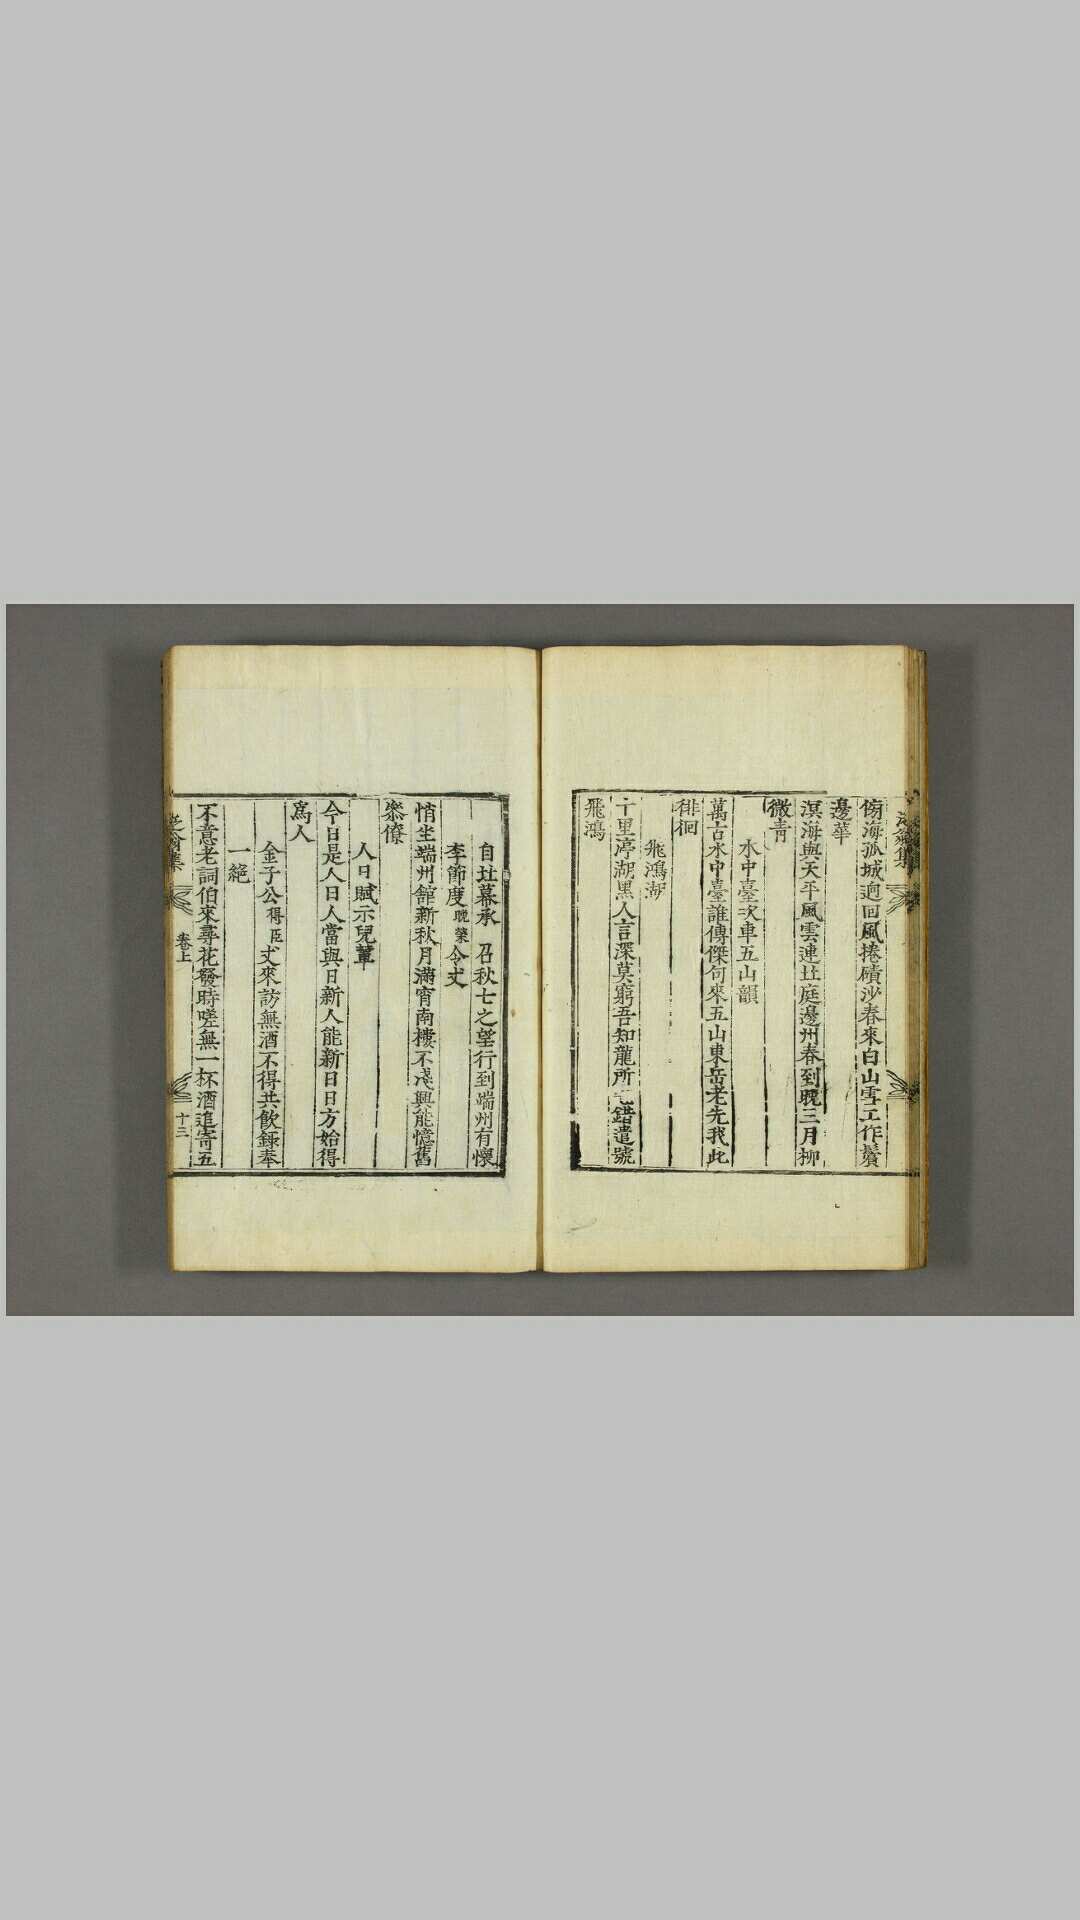 傍海孤城逈回風捲磧沙春來白山雪工作鬢
邊華
溟海與天平風雲連北庭邊州春到晚三月柳
微靑
水中臺次車五山韻
萬古水中臺誰傳傑句來五山東岳老先我此
徘徊
飛鴻湖
十里渟湖黑人言深莫窮吾知龍所 錯遣號
飛鴻
自北幕承 召秋七之望行到端州有懷
李節度 令丈
悄坐端州舘新秋月滿宵南樓不淺興能憶舊
叅僚
人日賦示兒輩
今日是人日人當與日新人能新日日方始得
爲人
金子公得臣丈來訪無酒不得共飮錄奉
一絕
不意老詞伯來尋花發時嗟無一杯酒追寄五
卷上
十三